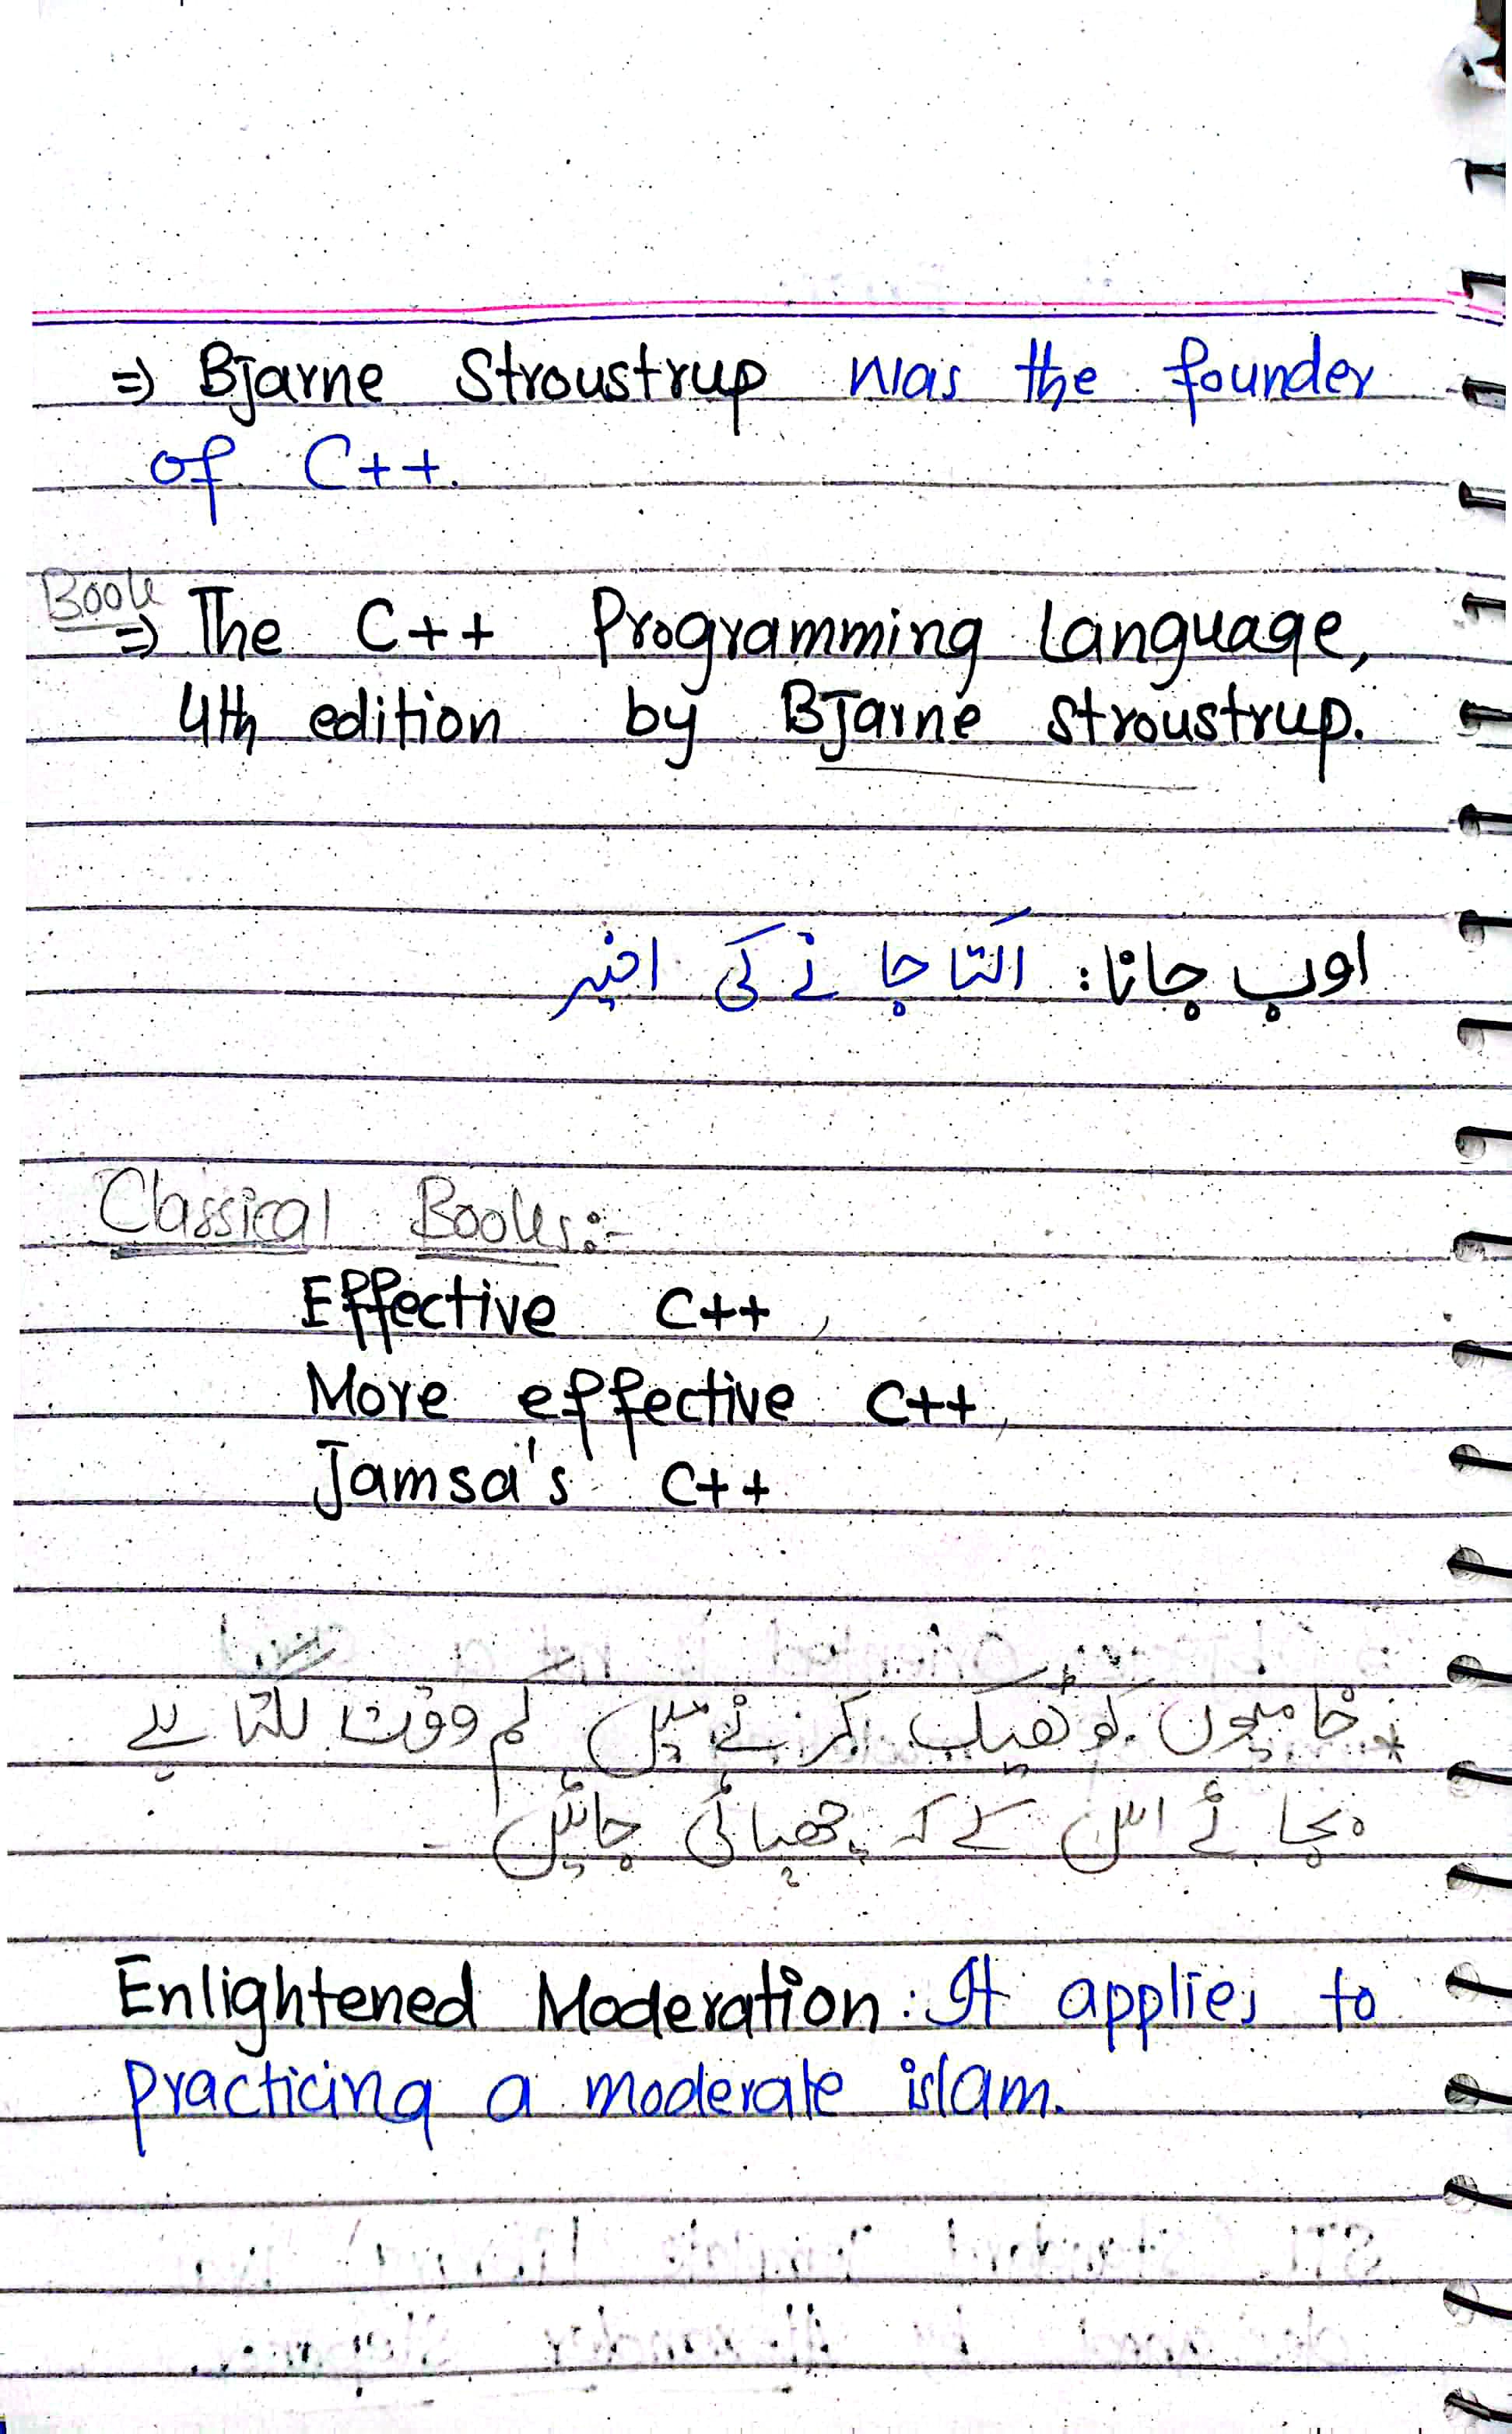 ⇒ Bjarne Stroustrup was the founder
of C++.
Book
⇒ The C++ Programming Language,
4th edition by Bjarne Stroustrup.
اوب جانا: اکتا جانے کی اخیر
Classical Books:-
Effective C++,
More effective C++,
Jamsa's C++
* خامیوں کو ٹھیک کرنے میں کم وقت لگتا ہے
بجائے اس کے کہ چھپائی جائیں ۔
Enlightened Moderation: It applies to
practicing a moderate islam.